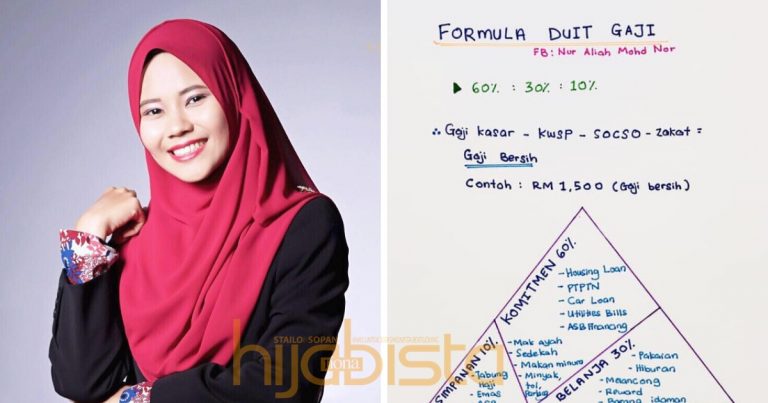 FORMULA DUIT GAJI
FB: Nur Aliah Mohd Nor
60% : 30% : 10%
∴ Gaji kasar - KWSP - SOCSO - Zakat =
Gaji Bersih
Contoh : RM 1,500 (Gaji bersih)
KOMITMEN 60%
- Housing Loan
- PTPTN
- Car Loan
- Utilities Bills
- ASB Financing
SIMPANAN 10%
- Tabung
Haji
- Emas
- Mak ayah
- Sedekah
- Makan minum
- Minyak,
tol,
BELANJA 30%
- Pakaian
- Hiburan
- Melancong
- Reward
- Barang idaman
STAILO SOPAN
hijabista
nona